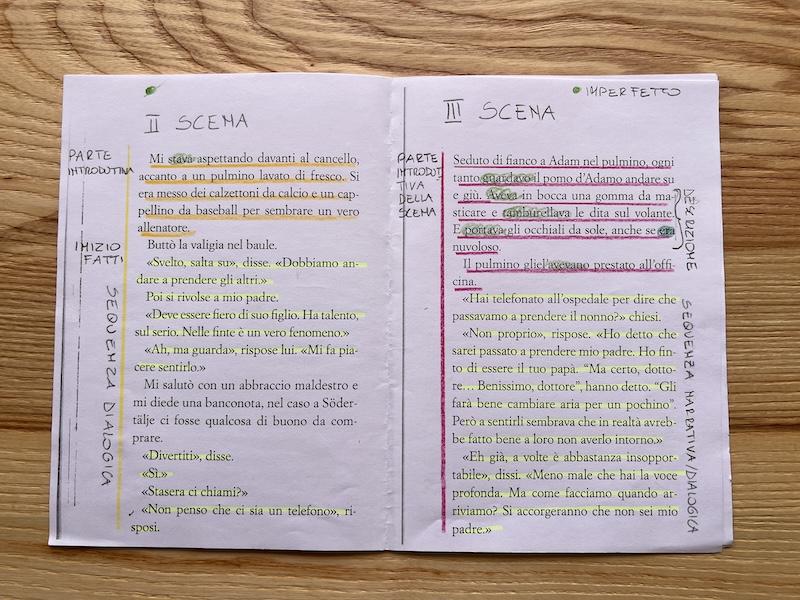 II SCENA
PARTE
INTRODUTTIVA
Mi stava aspettando davanti al cancello,
accanto a un pulmino lavato di fresco. Si
era messo dei calzettoni da calcio e un cap-
pellino da baseball per sembrare un vero
allenatore.
INIZIO
FATTI
Buttò la valigia nel baule.
SEQUENZA DIALOGICA
«Svelto, salta su», disse. «Dobbiamo an-
dare a prendere gli altri.»
Poi si rivolse a mio padre.
«Deve essere fiero di suo figlio. Ha talento,
sul serio. Nelle finte è un vero fenomeno.»
«Ah, ma guarda», rispose lui. «Mi fa pia-
cere sentirlo.»
Mi salutò con un abbraccio maldestro e
mi diede una banconota, nel caso a Söder-
tälje ci fosse qualcosa di buono da com-
prare.
«Divertiti», disse.
«Sì.»
«Stasera ci chiami?»
«Non penso che ci sia un telefono», ri-
sposi.
III SCENA
IMPERFETTO
PARTE
INTRODUT
TIVA
DELLA
SCENA
Seduto di fianco a Adam nel pulmino, ogni
tanto guardavo il pomo d'Adamo andare su
e giù. Aveva in bocca una gomma da ma-
sticare e tamburellava le dita sul volante.
E portava gli occhiali da sole, anche se era
nuvoloso.
DESCRIZIONE
Il pulmino gliel'avevano prestato all'offi-
cina.
SEQUENZA NARRATIVA/DIALOGICA
«Hai telefonato all'ospedale per dire che
passavamo a prendere il nonno?» chiesi.
«Non proprio», rispose. «Ho detto che
sarei passato a prendere mio padre. Ho fin-
to di essere il tuo papà. “Ma certo, dotto-
re… Benissimo, dottore”, hanno detto. “Gli
farà bene cambiare aria per un pochino”.
Però a sentirli sembrava che in realtà avreb-
be fatto bene a loro non averlo intorno.»
«Eh già, a volte è abbastanza insoppor-
tabile», dissi. «Meno male che hai la voce
profonda. Ma come facciamo quando ar-
riviamo? Si accorgeranno che non sei mio
padre.»